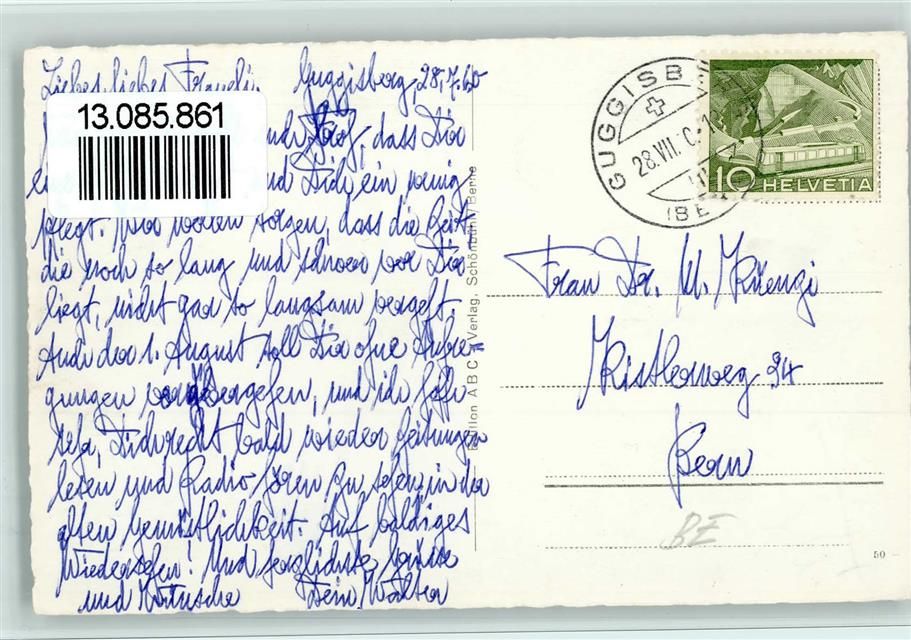 Liebes, liebes Fraueli, Guggisberg, 28.7.60
13.085.861
und hoff, dass Die
und Dich ein wenig
pflegt. Wir wollen sorgen, dass die Zeit
die noch so lang und schwer vor Dir
liegt, nicht gar so langsam vergeht.
Auch der 1. August soll Dir ohne Aufre=
gungen vorübergehen, und ich hoffe
sehr, Dich recht bald wieder Zeitungen
lesen und Radio hören zu sehen in der
alten Gemütlichkeit. Auf baldiges
Wiedersehen! Und herzlichste Grüsse
und Wünsche Dein Walter
A B C Verlag, Schönbühl/Berne
GUGGISB
28.VII.
(BE
10 HELVETIA
Frau Dr. M. Küenzi
Kistlerweg 34
Bern
BE
50